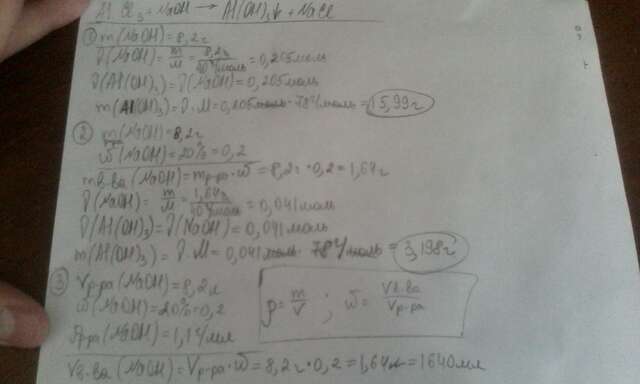 AlCl₃ + NaOH → Al(OH)₃↓ + NaCl
① m(NaOH) = 8,2г
ν(NaOH) = m/M = 8,2г/40г/моль = 0,205моль
ν(Al(OH)₃) = ν(NaOH) = 0,205моль
m(Al(OH)₃) = ν·M = 0,205моль · 78г/моль = 15,99г
② m р-ра(NaOH) = 8,2г
ω(NaOH) = 20% = 0,2
m в-ва(NaOH) = m р-ра · ω = 8,2г · 0,2 = 1,64г
ν(NaOH) = m/M = 1,64г/40г/моль = 0,041моль
ν(Al(OH)₃) = ν(NaOH) = 0,041моль
m(Al(OH)₃) = ν·M = 0,041моль · 78г/моль = 3,198г
③ Vр-ра(NaOH) = 8,2л
ω(NaOH) = 20% = 0,2
ρр-ра(NaOH) = 1,1г/мл
ρ = m/V ; ω = Vв-ва/Vр-ра
Vв-ва(NaOH) = Vр-ра · ω = 8,2г · 0,2 = 1,64л = 1640мл